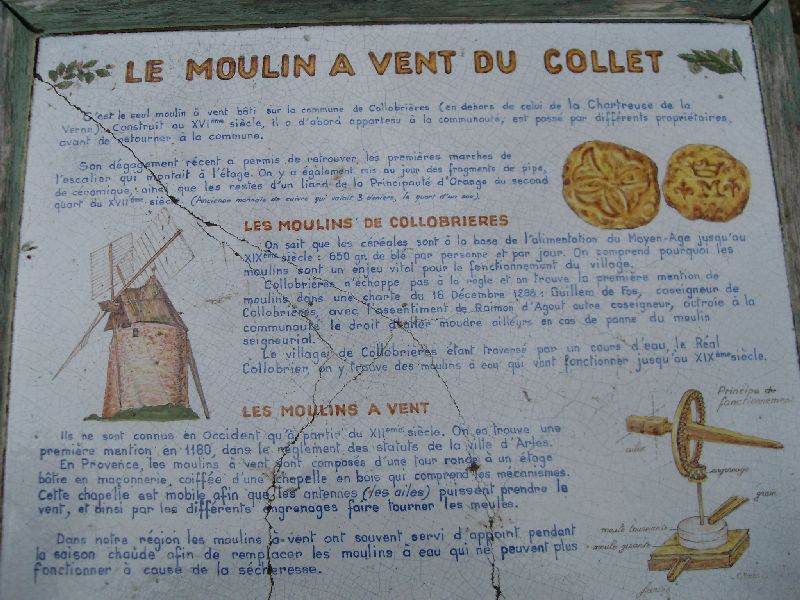 LE MOULIN A VENT DU COLLET
C'est le seul moulin à vent bâti sur la commune de Collobrières (en dehors de celui de la Chartreuse de la
Verne). Construit au XVIème siècle, il a d'abord appartenu à la communauté, est passé par différents propriétaires,
avant de retourner à la commune.
Son dégagement récent a permis de retrouver, les premières marches de
l'escalier qui montait à l'étage. On y a également mis au jour des fragments de pipe,
de céramique, ainsi que les restes d'un liard de la Principauté d'Orange du second
quart du XVIIème siècle (Ancienne monnaie de cuivre qui valait 3 deniers, le quart d'un sou).
LES MOULINS DE COLLOBRIERES
On sait que les céréales sont à la base de l'alimentation du Moyen-Age jusqu'au
XIXème siècle : 650 gr. de blé par personne et par jour. On comprend pourquoi les
moulins sont un enjeu vital pour le fonctionnement du village.
Collobrières n'échappe pas à la règle et on trouve la première mention de
moulins dans une charte du 16 Décembre : Guillem de Fos, coseigneur de
Collobrières, avec l'assentiment de Raimon d'Agout autre coseigneur, octroie à la
communauté le droit d'aller moudre ailleurs en cas de panne du moulin
seigneurial.
Le village de Collobrières étant traversé par un cours d'eau, le Réal
Collobrier, on y trouve des moulins à eau qui vont fonctionner jusqu'au XIXème siècle.
LES MOULINS A VENT
Ils ne sont connus en Occident qu'à partir du XIIème siècle. On en trouve une
première mention en 1180, dans le règlement des statuts de la ville d'Arles.
En Provence, les moulins à vent sont composés d'une tour ronde à un étage
bâtie en maçonnerie, coiffée d'une chapelle en bois qui comprend les mécanismes.
Cette chapelle est mobile afin que les antennes (les ailes) puissent prendre le
vent, et ainsi par les différents engrenages faire tourner les meules.
Dans notre région les moulins à vent ont souvent servi d'appoint pendant
la saison chaude afin de remplacer les moulins à eau qui ne peuvent plus
fonctionner à cause de la sécheresse.
Principe de
fonctionnement
ailes
engrenage
grain
meule tournante
meule gisante
farine